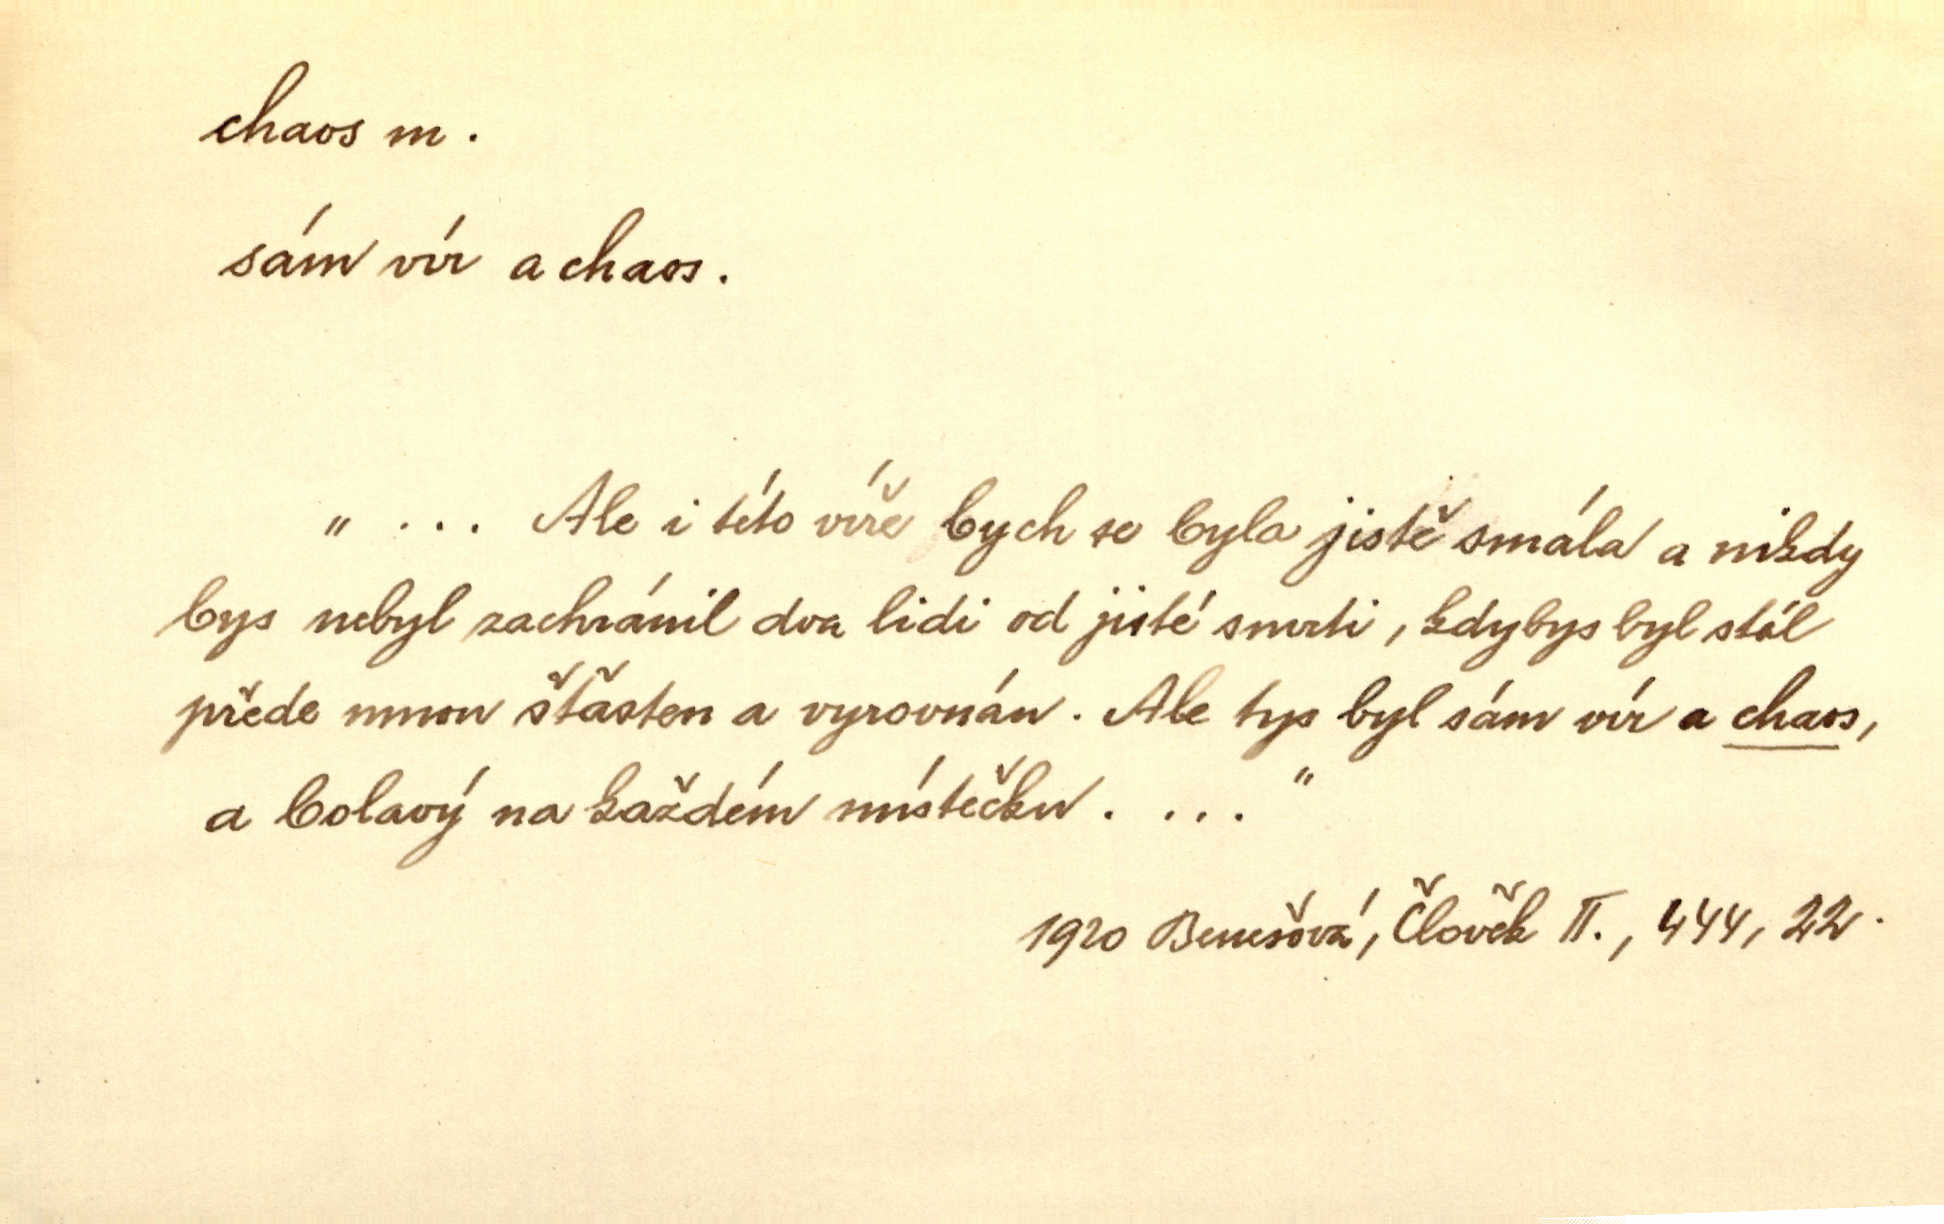 chaos m.
sám vír a chaos.
„ ... Ale i této víře bych se byla jistě smála a nikdy
bys nebyl zachránil dva lidi od jisté smrti, kdybys byl stál
přede mnou šťasten a vyrovnán. Ale tys byl sám vír a chaos,
a bolavý na každém místečku. ... "
1920 Benešová, Člověk II., 444, 22.